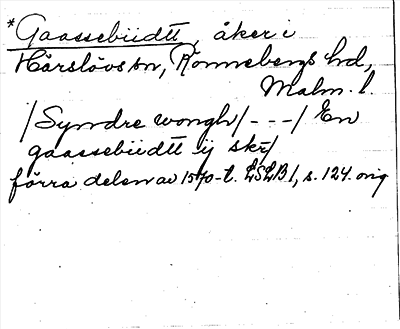 *Gaassebiidtt, åker i
Hårslövs sn, Rönnebergs hd,
Malm. l.
/Syndre wongh/---/ En
gaassebiidtt ij skr/
förra delen av 1570-t. LSLB 1, s. 124. orig